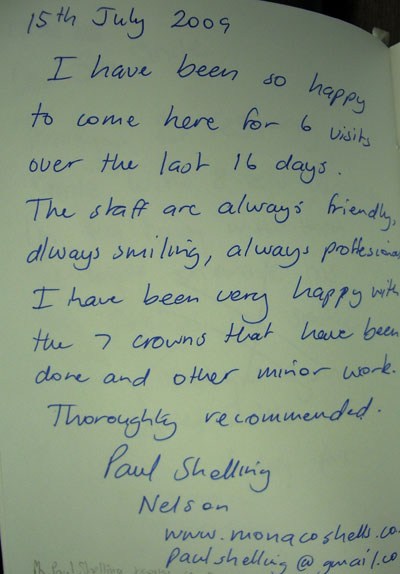 15th July 2009
I have been so happy
to come here for 6 visits
over the last 16 days.
The staff are always friendly,
always smiling, always proffessional
I have been very happy with
the 7 crowns that have been
done and other minor work.
Thoroughly recommended.
Paul Shelling
Nelson
www.monacoshells.co.
paulshelling@gmail.co
Mr Paul Shelling